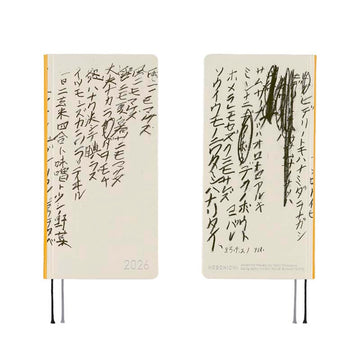 雨ニモマケズ
風ニモマケズ
雪ニモ夏ノ暑サニモマケヌ
丈夫ナカラダヲモチ
慾ハナク決シテ瞋ラズ
イツモシヅカニワラッテヰル
一日ニ玄米四合ト味噌ト少シノ野菜
2026
ヒデリノトキハナミダヲナガシ
サムサノナツハオロオロアルキ
ミンナニデクノボートヨバレ
ホメラレモセズクニモサレズ
ソウイフモノニワタシハナリタイ
HOBONICHI